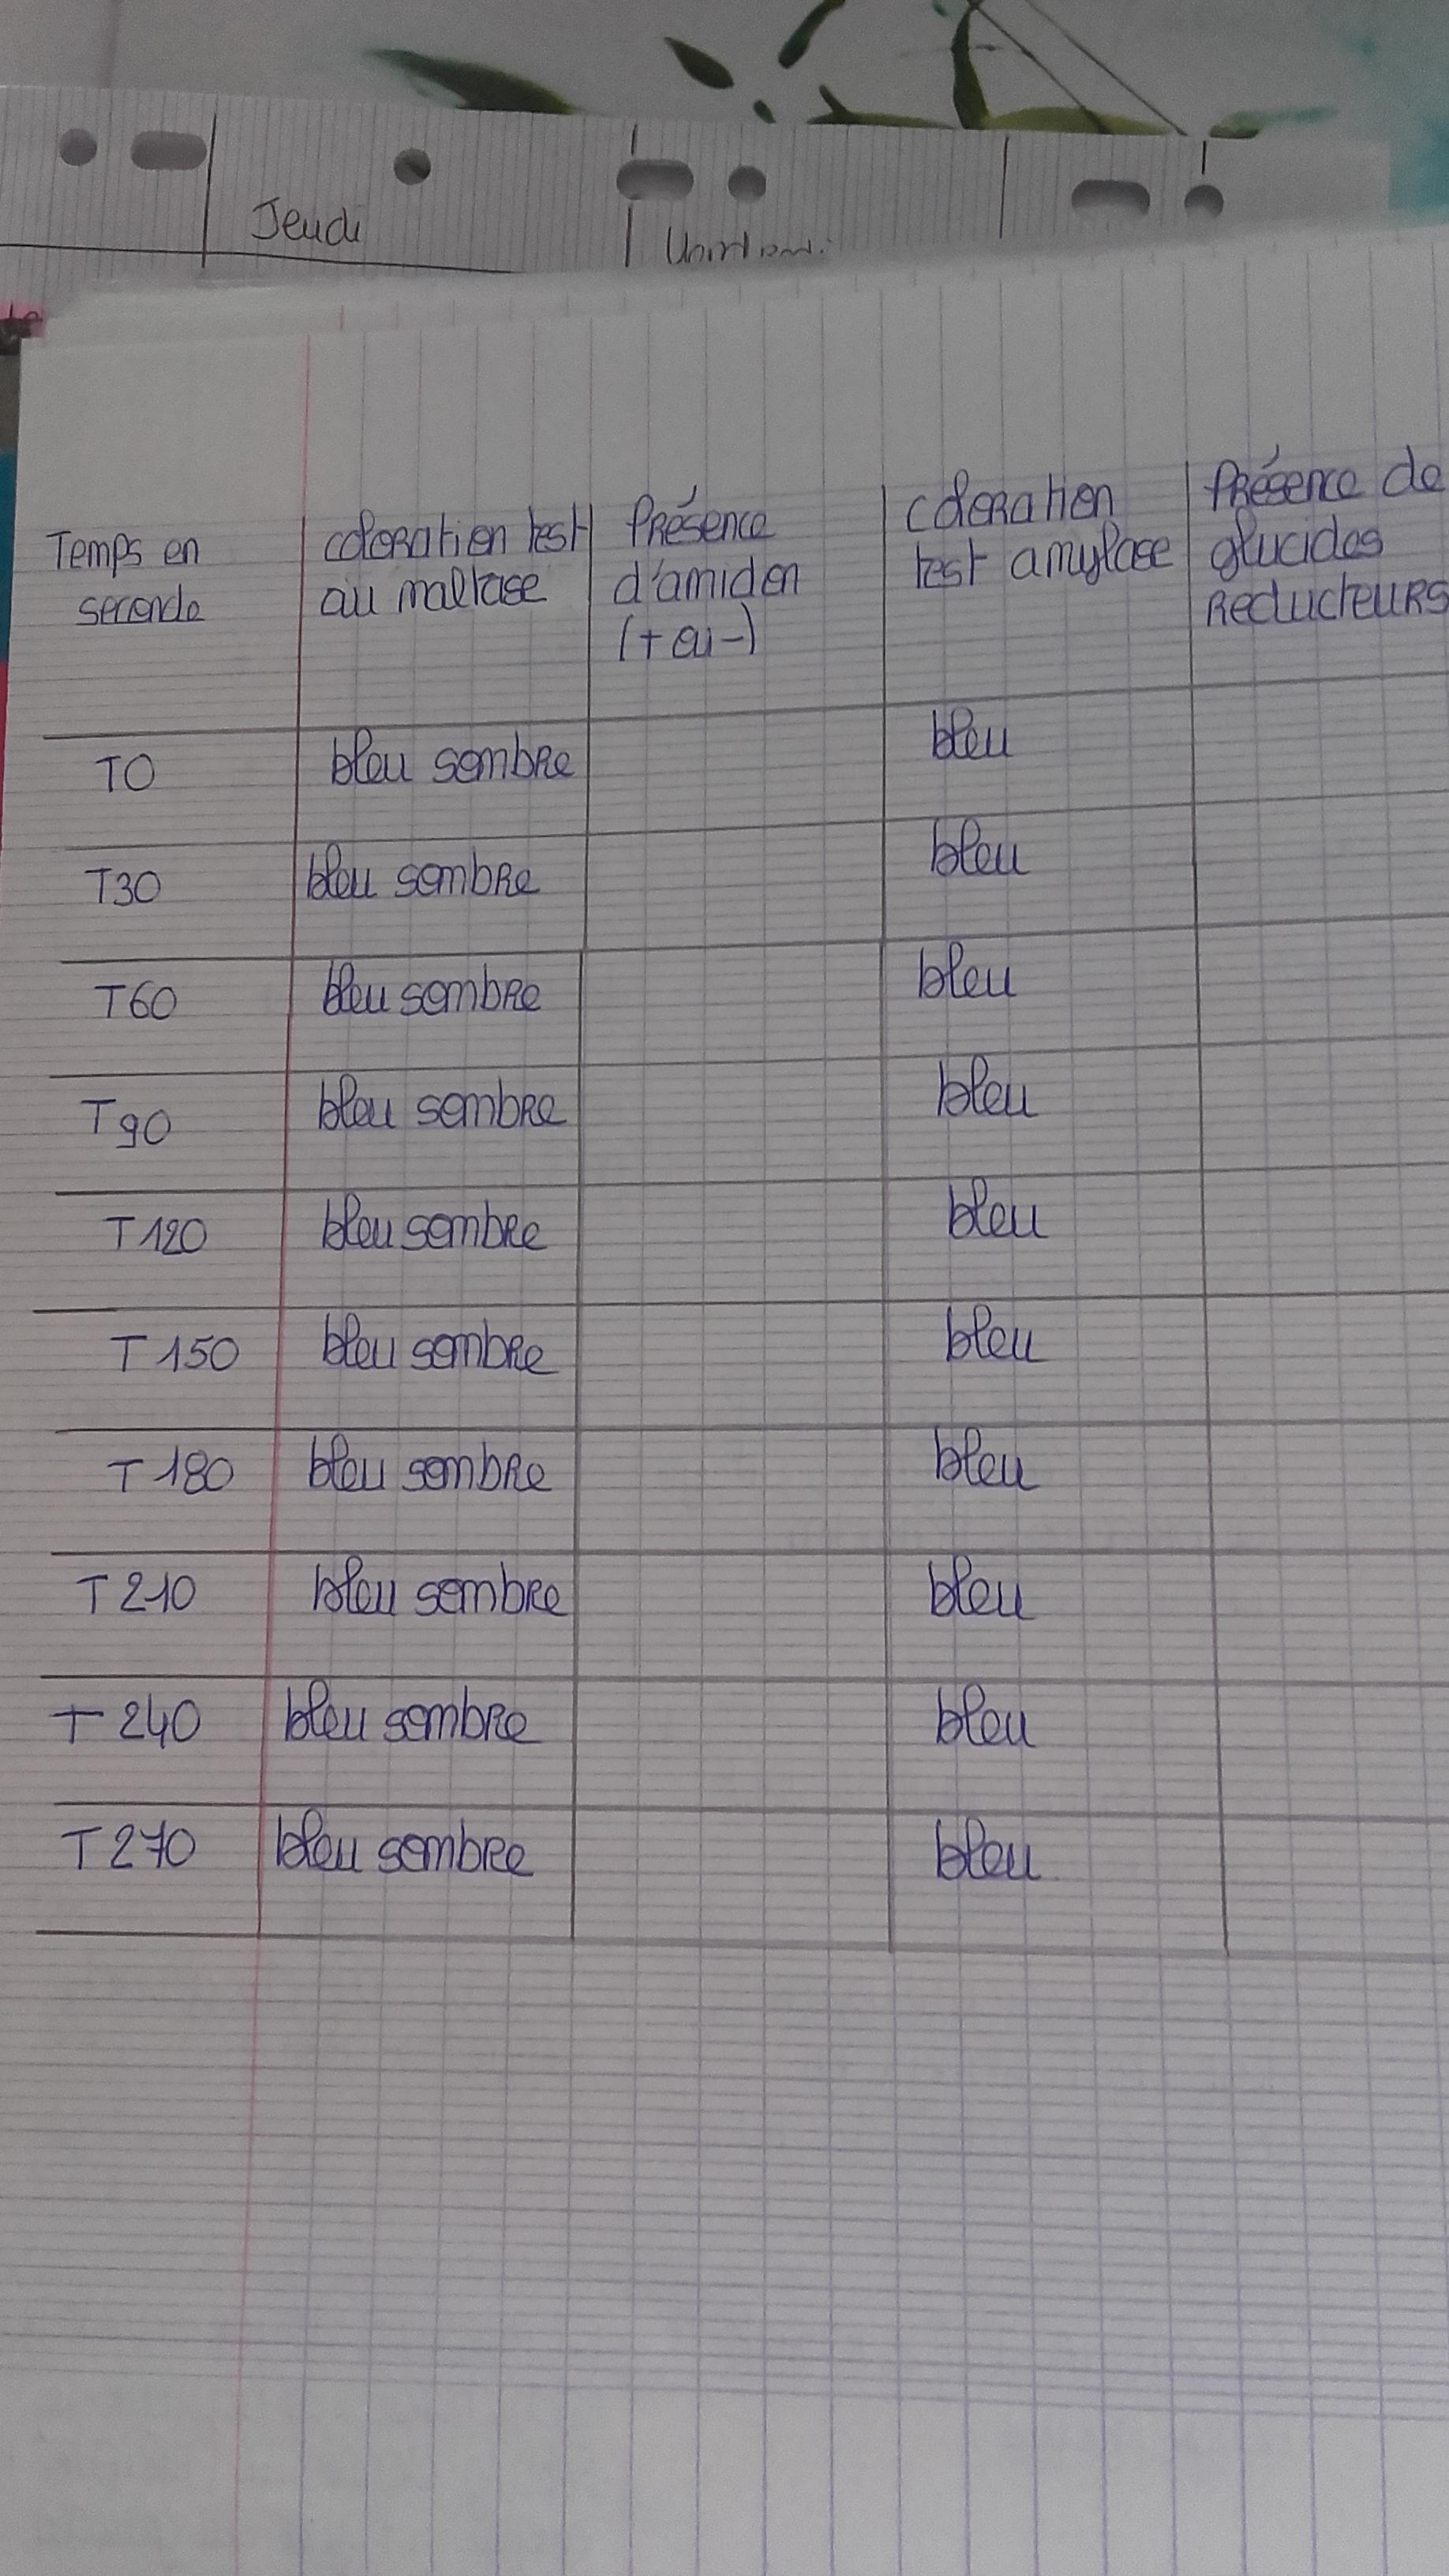 Jeudi
Temps en
seconde
coloration test
au maltase
Présence
d'amidon
(+ ou -)
coloration
test amylase
Présence de
glucides
réducteurs
T0 bleu sombre bleu
T30 bleu sombre bleu
T60 bleu sombre bleu
T90 bleu sombre bleu
T120 bleu sombre bleu
T150 bleu sombre bleu
T180 bleu sombre bleu
T210 bleu sombre bleu
T240 bleu sombre bleu
T270 bleu sombre bleu